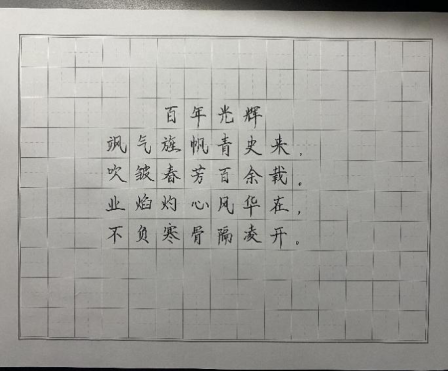 百年光辉
飒气旌帆青史来，
吹皱春芳百余载。
业焰灼心风华在，
不负寒骨隔凌开。